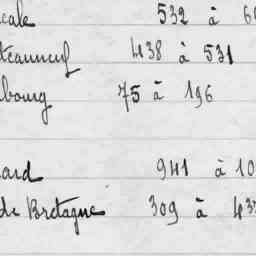 cale 532 à 6
teauneuf 438 à 531
bourg 75 à 196
ard 941 à 10
de Bretagne 309 à 43